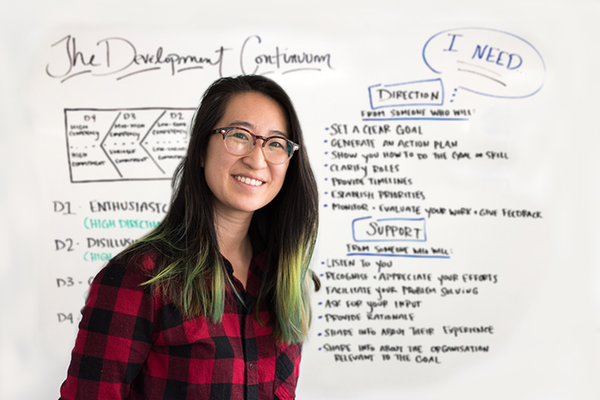 The Development Continuum
I NEED
D4
D3
D2
HIGH
COMPETENCY
HIGH
COMMITMENT
MOD-HIGH
COMPETENCY
VARIABLE
COMMITMENT
COMMITMENT
D1 - ENTHUSIASTIC
(HIGH DIRECTI
D2 - DISILLUSI
(HIGH
D3 -
D4
DIRECTION
FROM SOMEONE WHO WILL:
• SET A CLEAR GOAL
• GENERATE AN ACTION PLAN
• SHOW YOU HOW TO DO THE GOAL OR SKILL
• CLARIFY ROLES
• PROVIDE TIMELINES
• ESTABLISH PRIORITIES
• MONITOR + EVALUATE YOUR WORK + GIVE FEEDBACK
SUPPORT
FROM SOMEONE WHO WILL:
• LISTEN TO YOU
• RECOGNISE + APPRECIATE YOUR EFFORTS
FACILITATE YOUR PROBLEM SOLVING
• ASK FOR YOUR INPUT
• PROVIDE RATIONALE
• SHARE INFO ABOUT THEIR EXPERIENCE
• SHARE INFO ABOUT THE ORGANISATION
RELEVANT TO THE GOAL